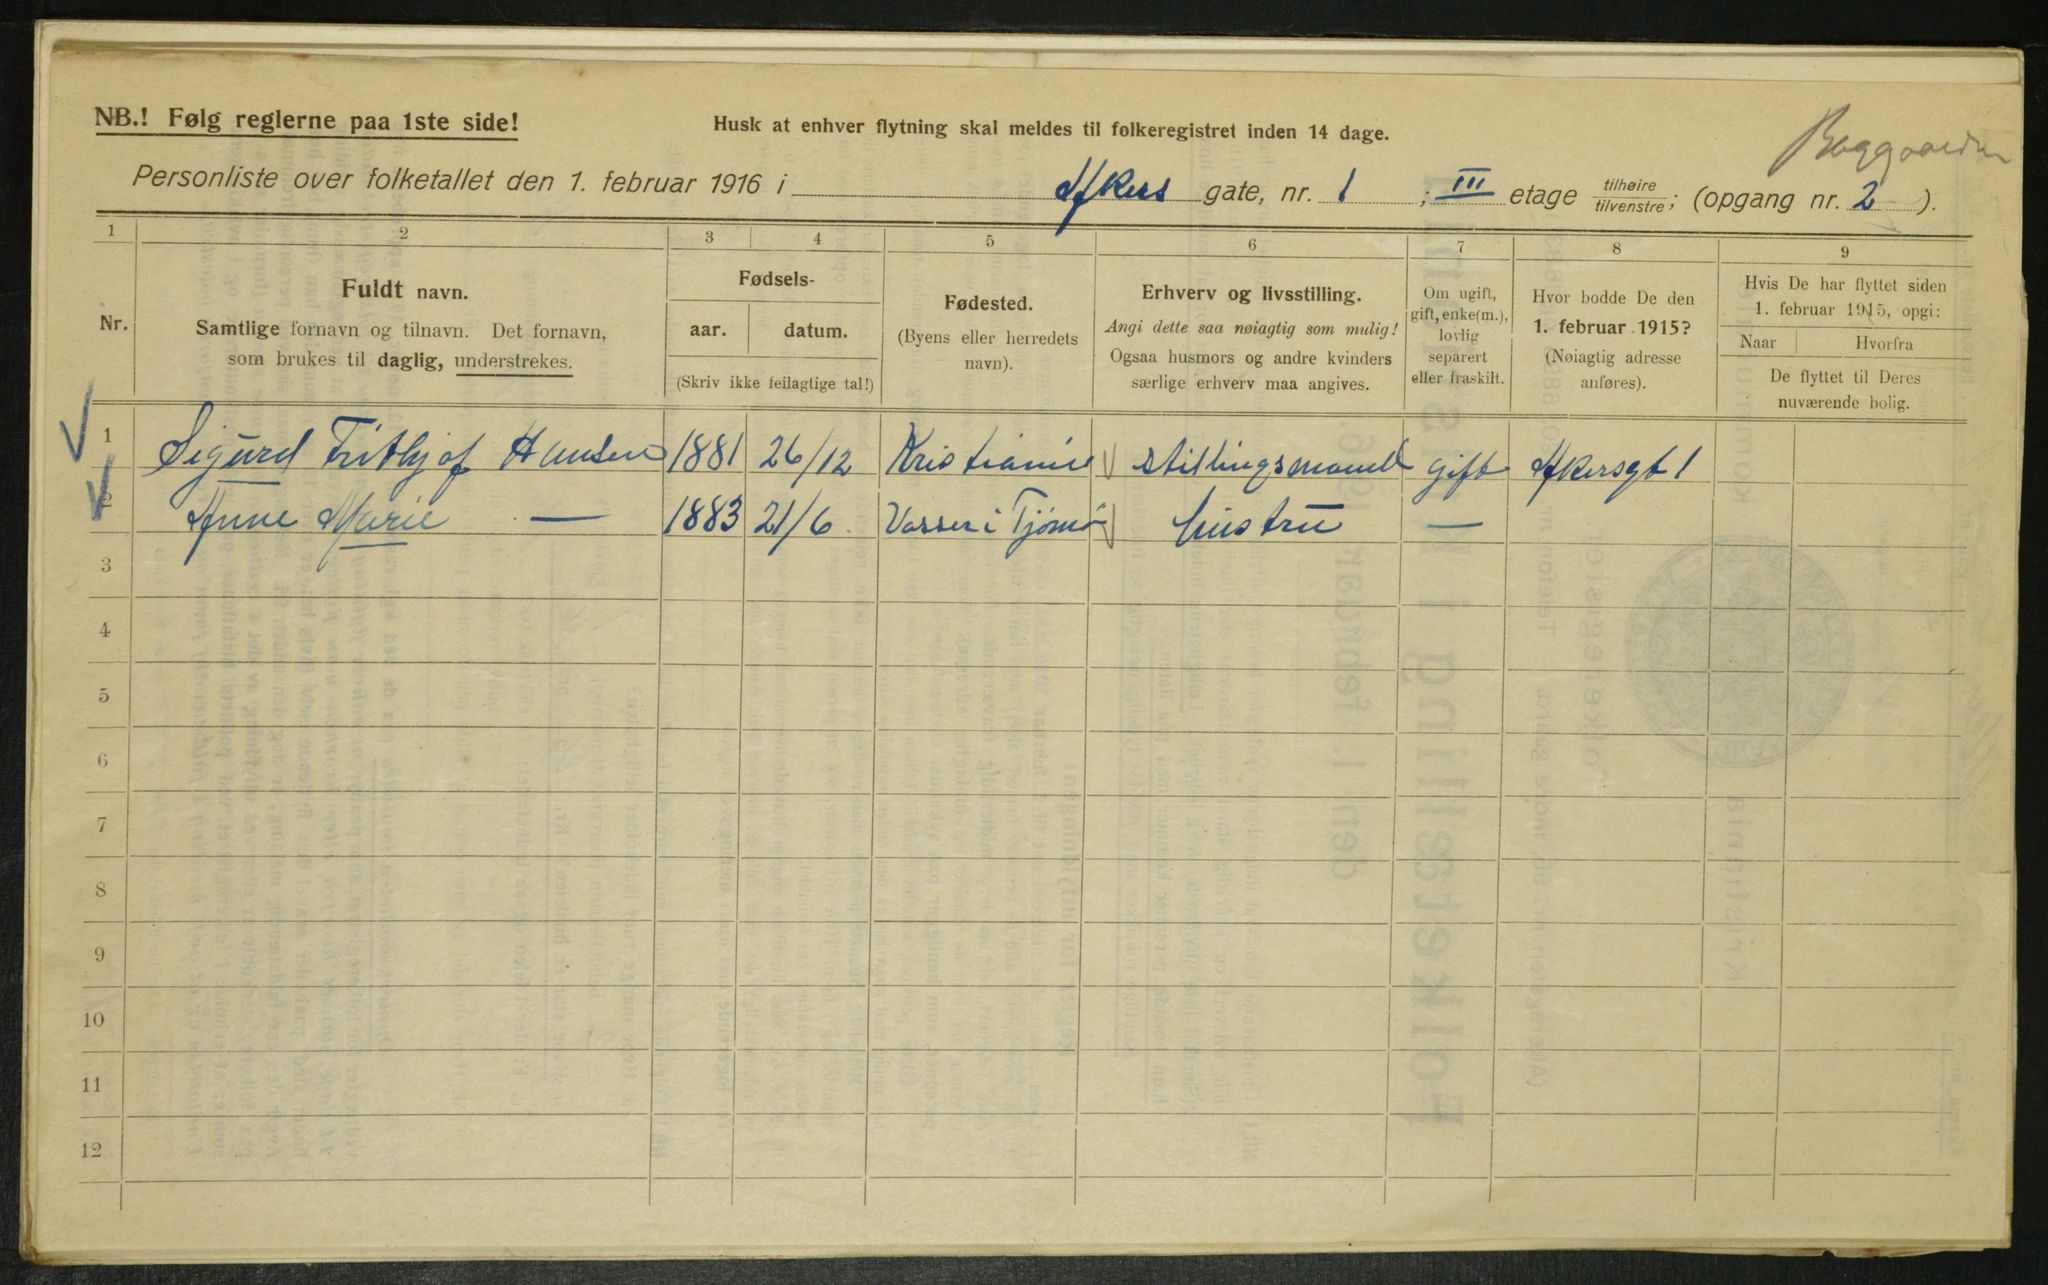 NB.! Følg reglerne paa 1ste side!
Husk at enhver flytning skal meldes til folkeregistret inden 14 dage.
Baggaarden
Personliste over folketallet den 1. februar 1916 i Akers gate, nr. 1 ; III etage tilhøire/tilvenstre; (opgang nr. 2 ).
1 2 3 4 5 6 7 8 9
Nr.
Fuldt navn.
Samtlige fornavn og tilnavn. Det fornavn,
som brukes til daglig, understrekes.
Fødsels-
aar. datum.
(Skriv ikke feilagtige tal!)
Fødested.
(Byens eller herredets
navn).
Erhverv og livsstilling.
Angi dette saa nøiagtig som mulig!
Ogsaa husmors og andre kvinders
særlige erhverv maa angives.
Om ugift,
gift, enke(m.),
lovlig
separert
eller fraskilt.
Hvor bodde De den
1. februar 1915?
(Nøiagtig adresse
anføres).
Hvis De har flyttet siden
1. februar 1915, opgi:
Naar Hvorfra
De flyttet til Deres
nuværende bolig.
1 Sigurd Frithjof Hansen 1881 26/12 Kristiania stillingsmand gift Akersgt 1
2 Anne Marie — 1883 21/6 Vasser i Tjømø hustru —
3
4
5
6
7
8
9
10
11
12